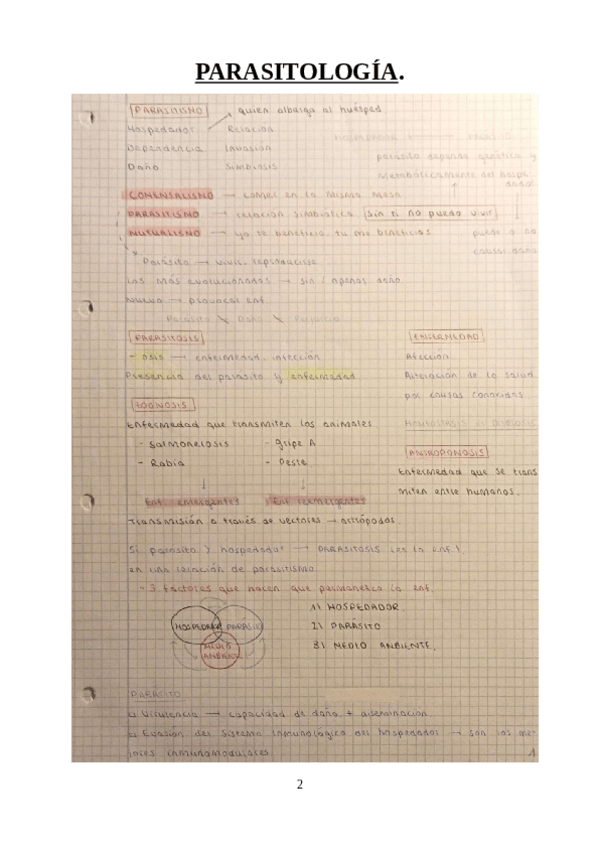 PARASITOLOGÍA.
PARASITISMO → quien alberga al huésped
Hospedador Relación
Dependencia Invasión
Daño Simbiosis
HOSPEDADOR PARÁSITO
parásito depende genética y
metabólicamente del hospe-
dador
puede o no
causar daño
COMENSALISMO → comer en la misma mesa
PARASITISMO → relación simbiótica sin ti no puedo vivir
MUTUALISMO → yo te beneficio, tu me beneficias
* Parásito → vivir, reproducirse
Los más evolucionados → sin / apenas daño
Nuevo → provocar enf.
Parásito Daño Perjuicio
PARASITOSIS
- osis → enfermedad, infección
Presencia del parásito y enfermedad
ENFERMEDAD
Afección
Alteración de la salud
por causas conocidas
ZOONOSIS
Enfermedad que transmiten los animales
- Salmonelosis - Gripe A
- Rabia - Peste
↓ ↓
Enf. emergentes Enf. reemergentes
Transmisión a través de vectores → artrópodos.
ANTROPONOSIS
Enfermedad que se trans
miten entre humanos.
Si parásito y hospedador → PARASITOSIS (es la enf.)
en una relación de parasitismo
- 3 factores que hacen que permanezca la enf.
HOSPEDADOR PARÁSITO
MEDIO
AMBIENTE
1) HOSPEDADOR
2) PARÁSITO
3) MEDIO AMBIENTE.
PARÁSITO
Virulencia → capacidad de daño + diseminación
Evasión del Sistema Inmunológico del hospedador → son los me-
jores inmunomoduladores
1
2